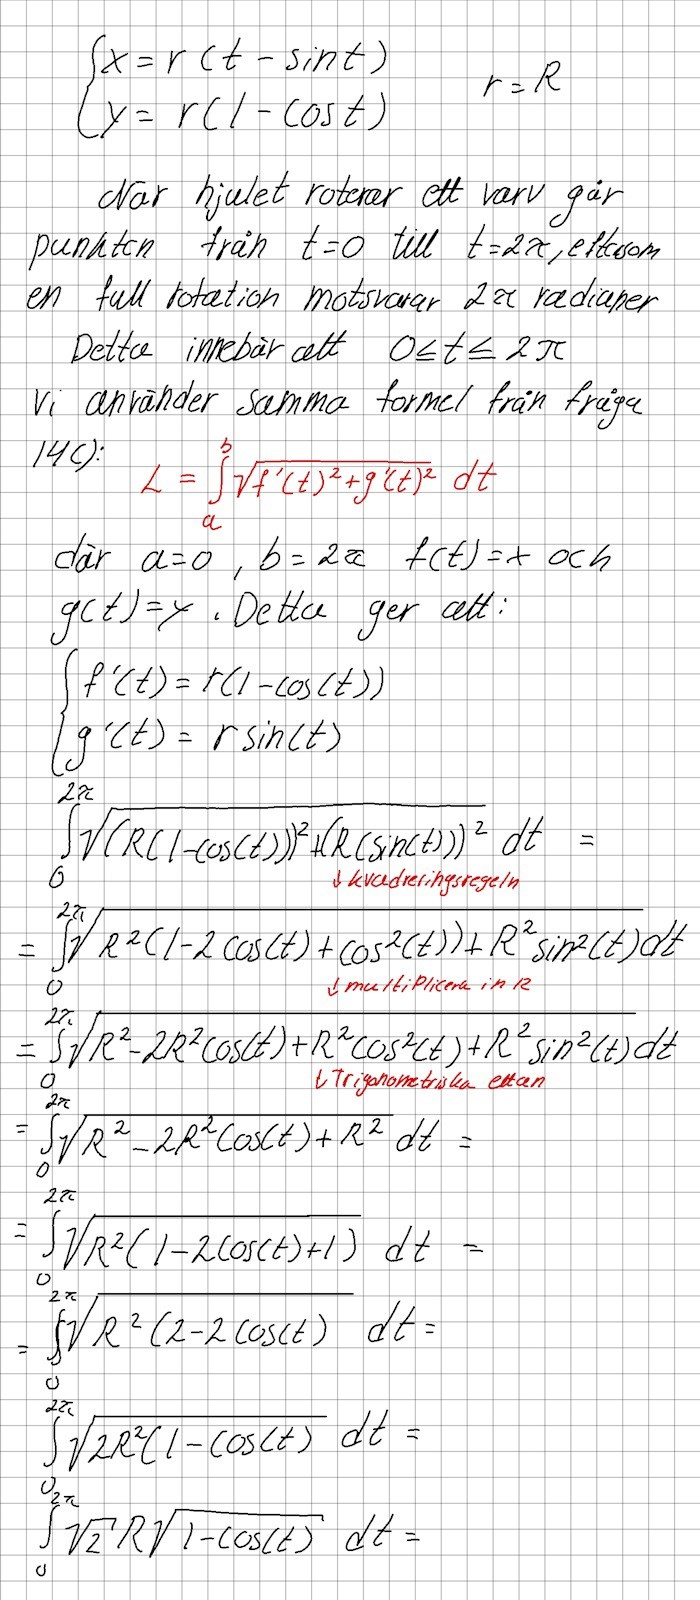 {x = r(t - sint)
{y = r(1 - cost)
r = R
När hjulet roterar ett varv går
punkten från t=0 till t=2π, eftersom
en full rotation motsvarar 2π radianer
Detta innebär att 0≤t≤2π
Vi använder samma formel från fråga
14c):
L = ∫_a^b √(f'(t)²+g'(t)²) dt
där a=0, b=2π f(t)=x och
g(t)=y. Detta ger att:
{f'(t) = r(1-cos(t))
{g'(t) = r sin(t)
∫_0^{2π} √((R(1-cos(t)))²+(R(sin(t)))²) dt =
↓ kvadreringsregeln
= ∫_0^{2π} √(R²(1-2cos(t)+cos²(t))+R²sin²(t)) dt
↓ multiplicera in R
= ∫_0^{2π} √(R²-2R²cos(t)+R²cos²(t)+R²sin²(t)) dt
↓ Trigonometriska ettan
= ∫_0^{2π} √(R²-2R²cos(t)+R²) dt =
= ∫_0^{2π} √(R²(1-2cos(t)+1)) dt =
= ∫_0^{2π} √(R²(2-2cos(t)) dt =
∫_0^{2π} √(2R²(1-cos(t)) dt =
∫_0^{2π} √2 R√(1-cos(t)) dt =